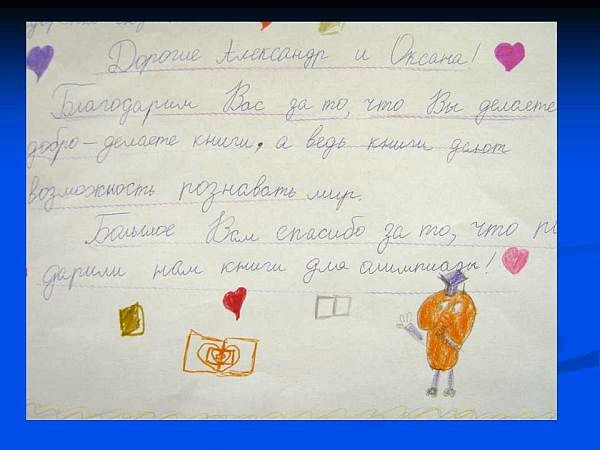 Дорогие Александр и Оксана!
Благодарим Вас за то, что Вы делаете
добро - делаете книги, а ведь книги дают
возможность познавать мир.
Большое Вам спасибо за то, что по
дарили нам книги для олимпиады!